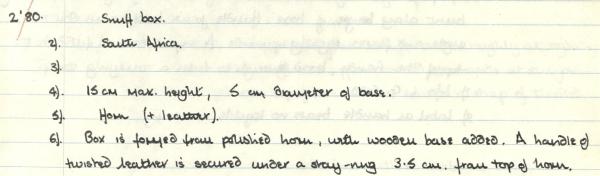 2'80. Snuff box.
2). South Africa.
3).
4). 15 cm max. height, 5 cm diameter of base.
5). Horn (+ leather).
6). Box is formed from polished horn, with wooden base added. A handle of
twisted leather is secured under a stay-ring 3.5 cm. from top of horn.